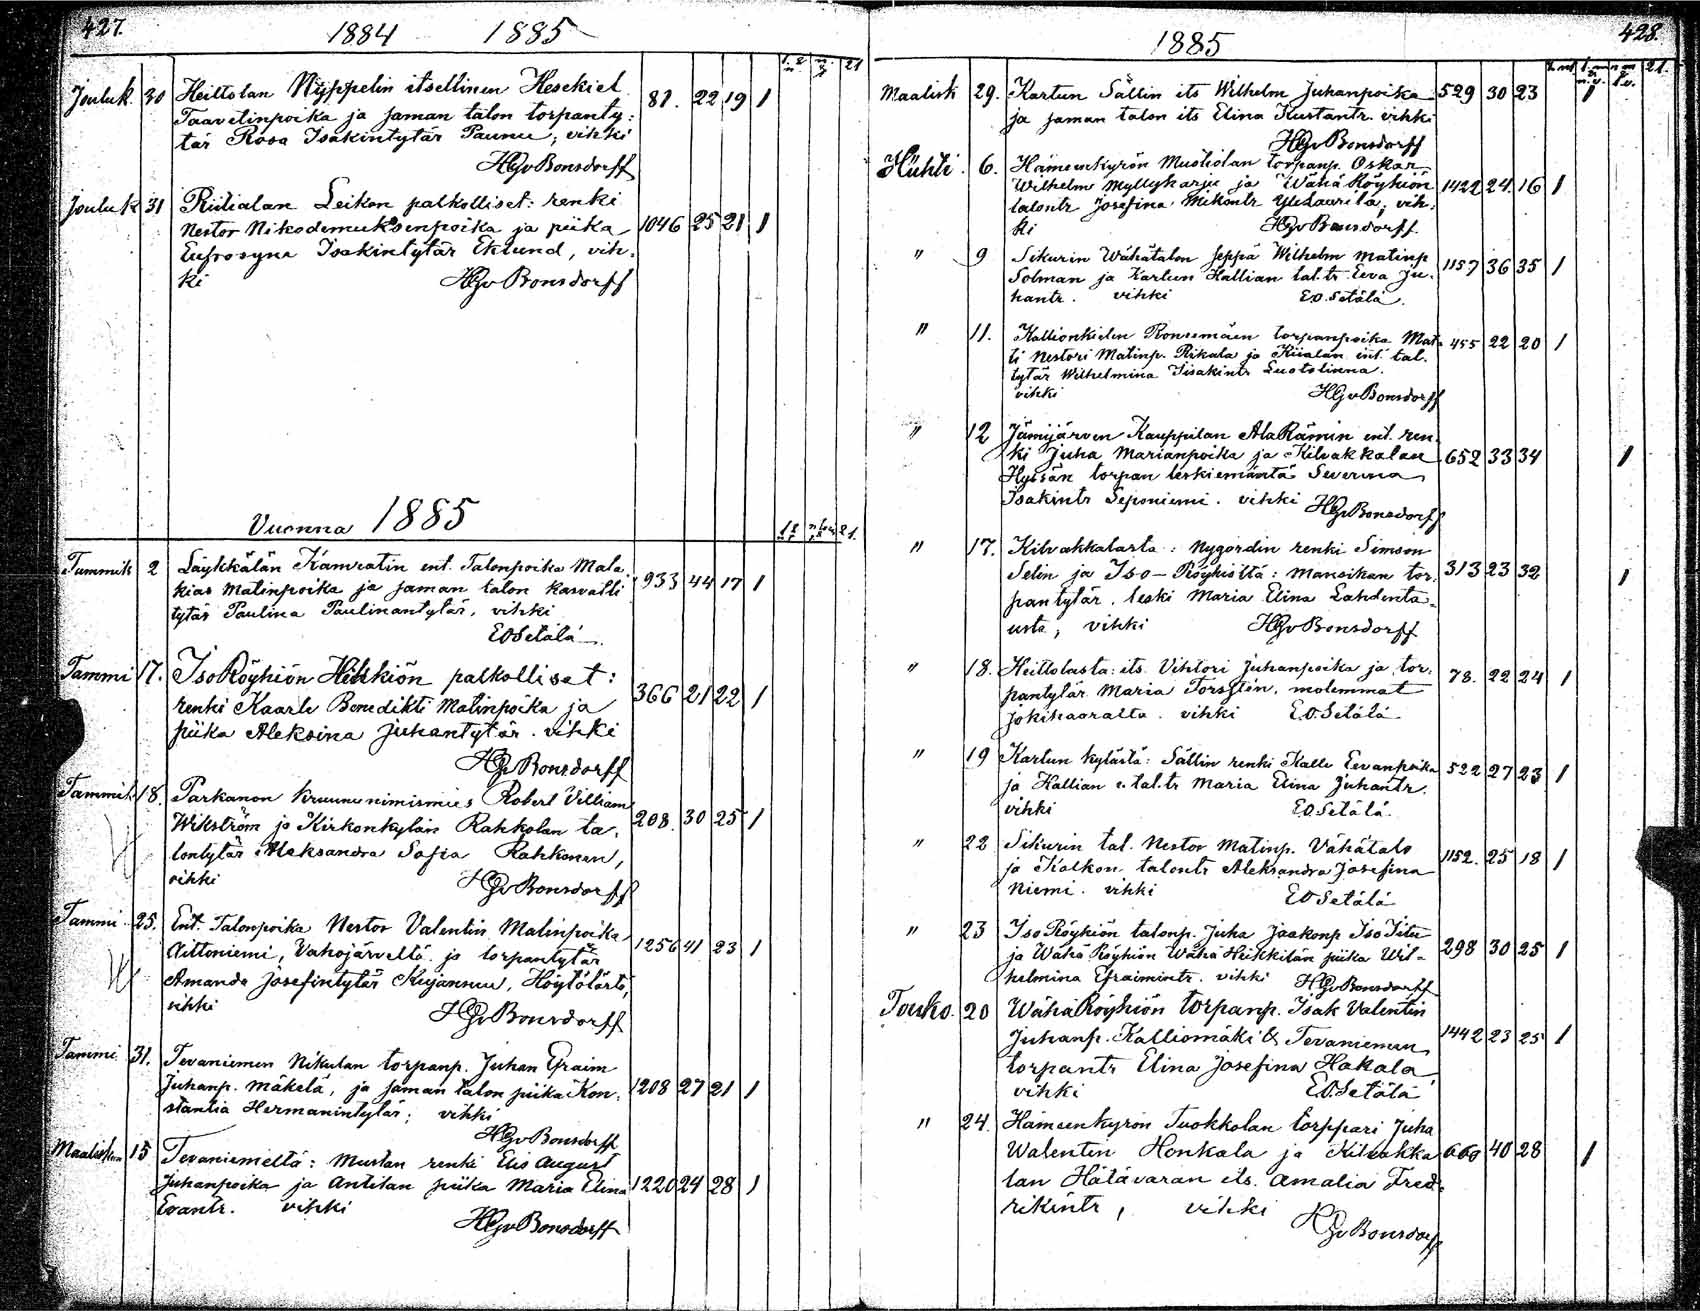 427.
1884 1885
Jouluk. 30 Heittolan Nyppelin itsellinen Hesekiel 81. 22 19 1
Taavetinpoika ja saman talon torpanty:
tär Rosa Isakintytär Paunu, vihki
HGvBonsdorff
Jouluk 31 Riitialan Leikon palkolliset: renki
Nestor Nikodemuksenpoika ja piika 1046 25 21 1
Eufrosyna Isakintytär Eklund, vih-
ki HGvBonsdorff
Vuonna 1885
Tammik 2 Läykkälän Kamratin ent. Talonpoika Mala
kias Matinpoika ja saman talon kasvatti 933 44 17 1
tytär Paulina Paulinantytär, vihki
EOSetälä
Tammi 17. IsoRöyhiön Heikkiön palkolliset:
renki Kaarle Benedikti Matinpoika ja 366 21 22 1
piika Aleksina Juhantytär. vihki
HGvBonsdorff
Tammik 18. Parkanon kruununimismies Robert Villiam
Wikström ja Kirkonkylän Rahkolan ta- 208. 30 25 1
lontytär Aleksandra Sofia Rahkonen,
vihki HGvBonsdorff
Tammi 25. Ent. Talonpoika Nestor Valentin Matinpoika
Aittoniemi, Vahojärveltä ja torpantytär 1256 41 23 1
Amanda Josefintytär Kujansuu, Höytölästä,
vihki HGvBonsdorff
Tammi. 31. Tevaniemen Nikulan torpanp. Juhan Efraim
Juhanp. Mäkelä, ja saman talon piika Kon- 1208 27 21 1
stantia Hermanintytär; vihki
HGvBonsdorff
Maalisk 15 Tevaniemeltä: Mustan renki Elis August
Juhanpoika ja Antilan piika Maria Elina 1220 24 28 1
Evantr. vihki HGvBonsdorff
428.
1885
Maalisk 29. Kartun Sällin its Wilhelm Juhanpoika 529 30 23 1
ja saman talon its Elina Kustantr. vihki
HGvBonsdorff
Huhti. 6. Hämeenkyrön Mustiolan torpanp. Oskar
Wilhelm Myllykarju ja Wähä Röyhiön 1422 24 16 1
talontr Josefina Mikontr Ylitaurila, vih-
ki HGvBonsdorff
" 9 Sikurin Wähätalon seppä Wilhelm Matinp
Solman ja Kartun Hallian tal.tr Eeva Ju- 1157 36 35 1
hantr. vihki E.O.Setälä.
" 11. Kallionkielen Ronsemäen torpanpoika Mat- 455 22 20 1
ti Nestori Matinp. Rikala ja Kiialan ent. tal.
tytär Wilhelmina Iisakintr Luotolinna.
vihki HGvBonsdorff
" 12 Jämijärven Kauppilan AlaRämin ent. ren-
ki Juha Marianpoika ja Kilvakkalan 652 33 34 1
Hyssän torpan leskiemäntä Severina
Isakintr Seponiemi. vihki HGvBonsdorff
" 17. Kilvakkalasta: Nygordin renki Simson
Selin ja Iso-Röyhiöltä: Mansikan tor- 313 23 32 1
pantytär. leski Maria Elina Lahdenta-
usta; vihki HGvBonsdorff
" 18. Heittolasta: its. Vihtori Juhanpoika ja tor- 78. 22 24 1
pantytär Maria Torstén, molemmat
Jokihaaralta. vihki E.O.Setälä
" 19 Kartun kylästä: Sällin renki Kalle Eevanpoika 522 27 23 1
ja Hallian e. tal.tr Maria Elina Juhantr.
vihki E.O.Setälä.
" 22 Sikurin tal. Nestor Matinp. Vähätalo 1152. 25 18 1
ja Kalkon talontr Aleksandra Josefina
Niemi. vihki EOSetälä
" 23 IsoRöyhiön talonp. Juha Jaakonp IsoIitu
ja WähäRöyhiön WähäHeikkilän piika Wil- 298 30 25 1
helmina Efraimintr. vihki HGvBonsdorff
Touko. 20 WähäRöyhiön torpanp. Isak Valentin
Juhanp. Kalliomäki & Tevaniemen 1442 23 25 1
torpantr Elina Josefina Hakala,
vihki E.O.Setälä
" 24. Hämeenkyrön Tuokkolan torppari Juha
Walentin Honkala ja Kilvakka 660 40 28 1
lan Hätävaran its. Amalia Fred-
rikintr, vihki HGvBonsdorff